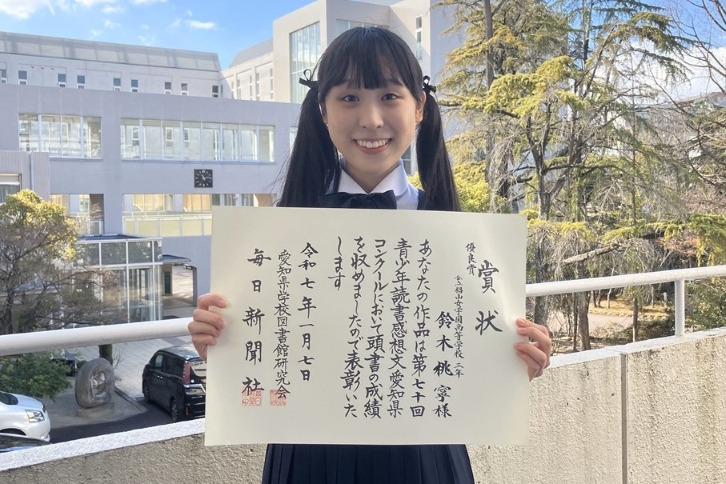 賞状
優良賞
鈴木桃寧様
あなたの作品は第七十回
青少年読書感想文愛知県
コンクールにおいて頭書の成績
を収めましたので表彰いた
します
令和七年一月七日
愛知県学校図書館研究会
毎日新聞社